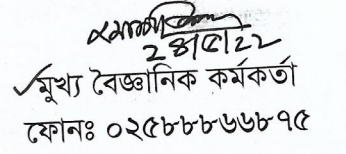 ২৪/৫/২২
মুখ্য বৈজ্ঞানিক কর্মকর্তা
ফোনঃ ০২৫৮৮৮৬৬৮৭৫